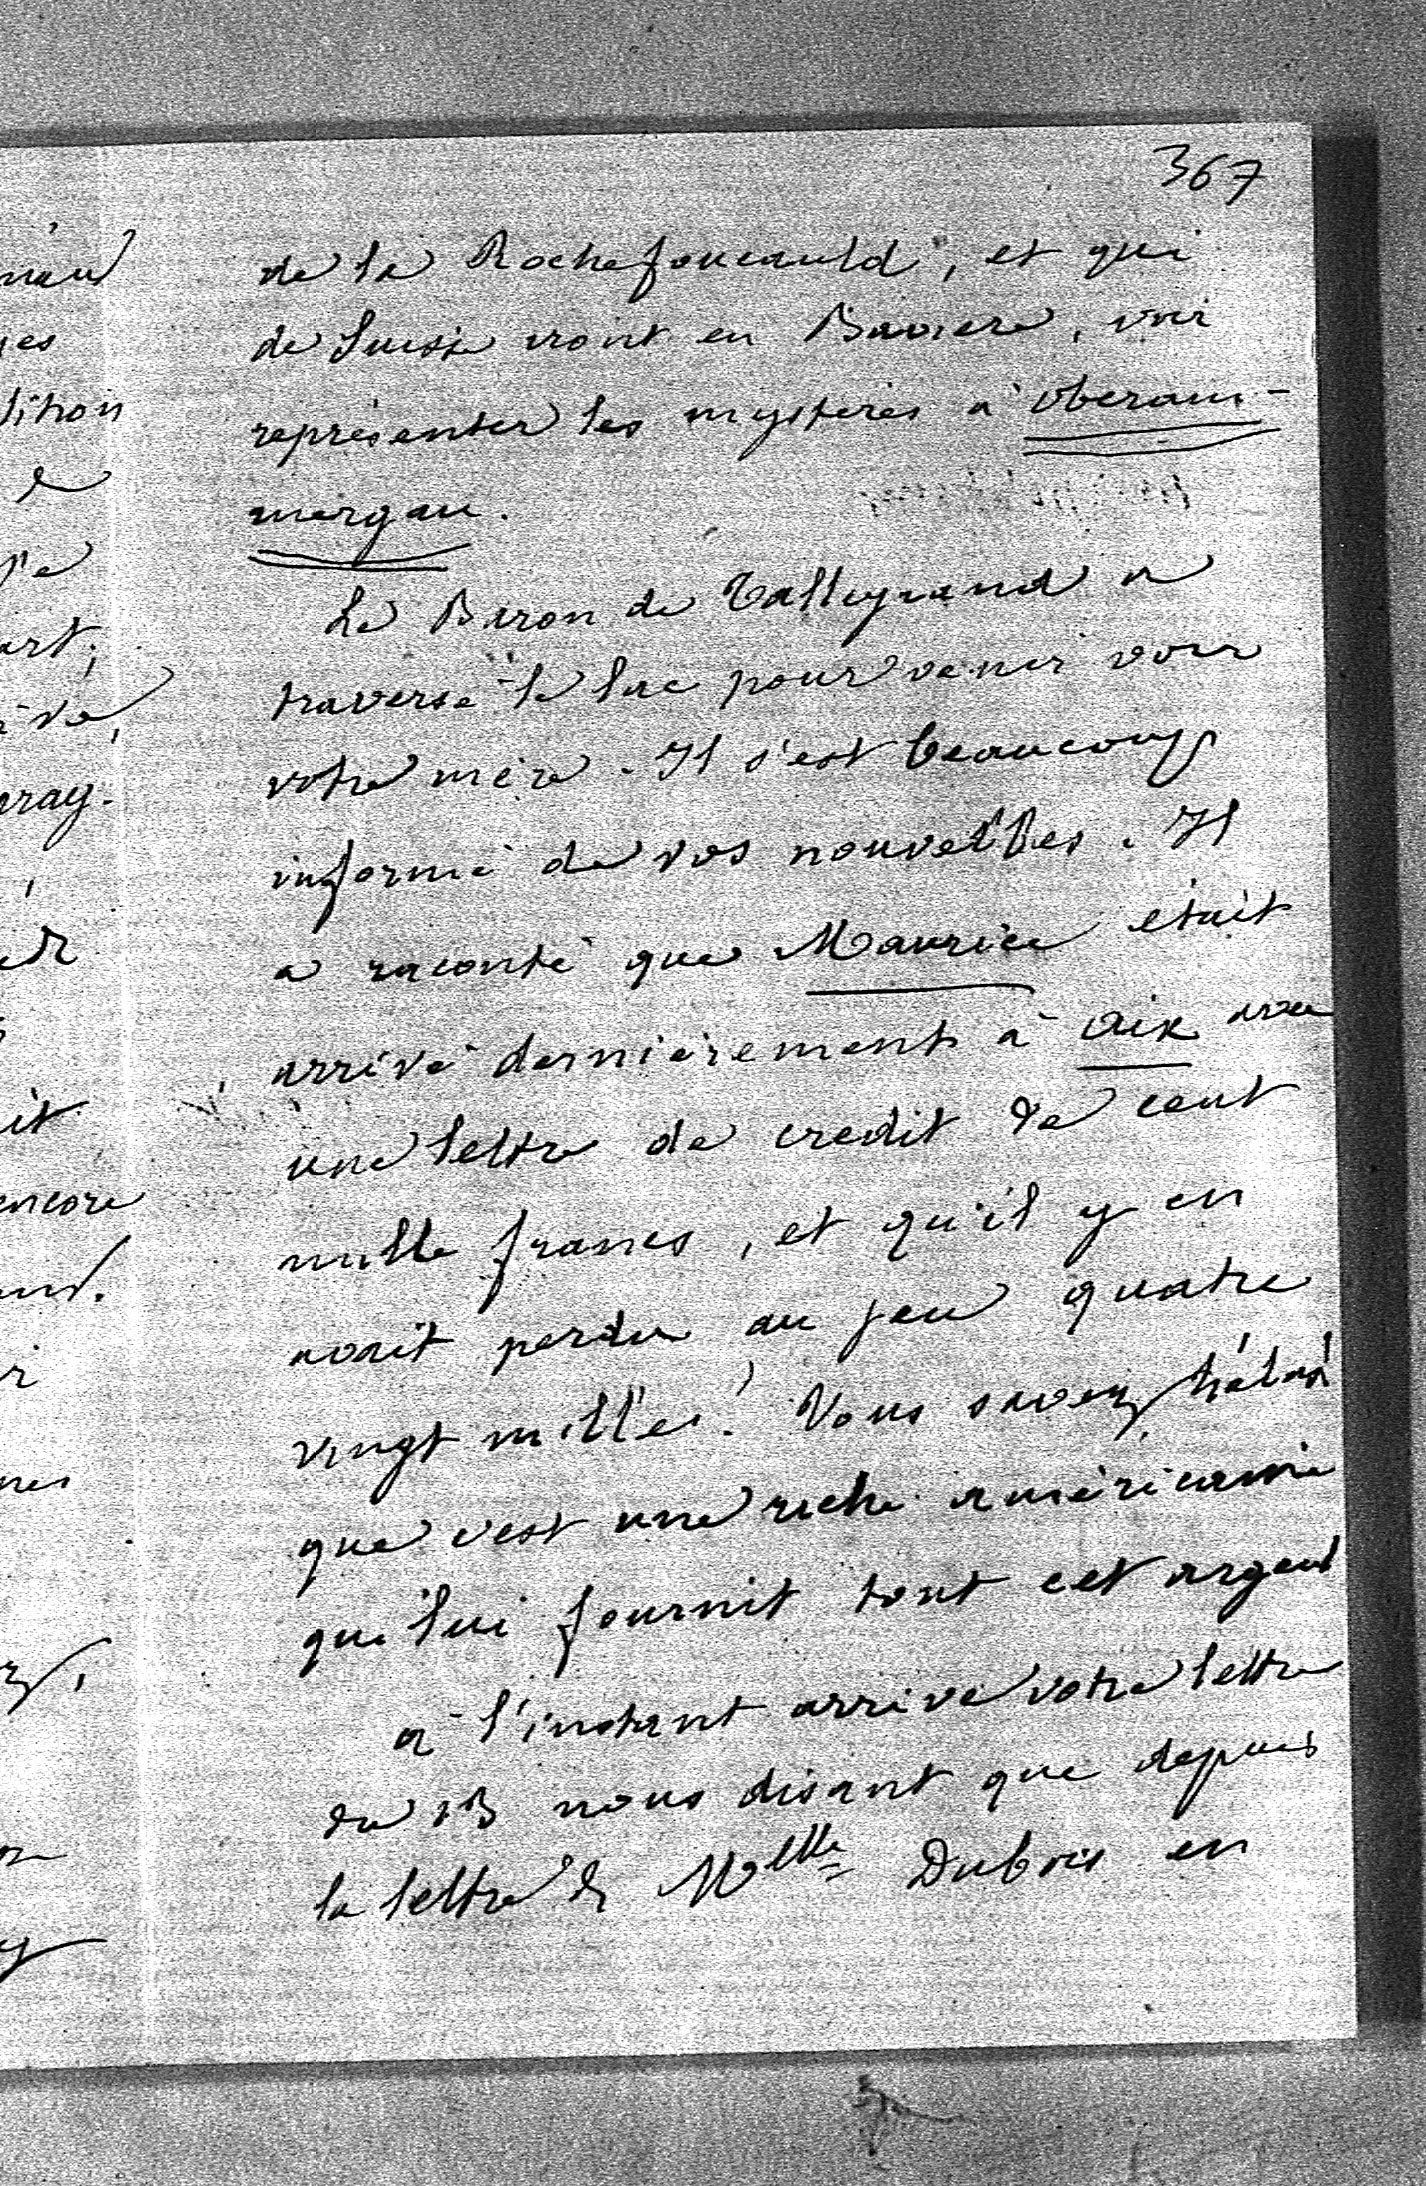 367
de la Rochefoucauld, et qui
de Suisse iront en Baviere, voir
représenter les mystères à Oberam-
mergau.
Le Baron de Talleyrand a
traversé le lac pour venir voir
votre mère. Il s'est beaucoup
informé de vos nouvelles. Il
a raconté que Maurice était
arrivé dernièrement à Aix avec
une lettre de credit de cent
mille francs, et qu'il y en
avait perdu au jeu quatre
vingt milles! Vous savez, hélas!
que c'est une riche américaine
qui lui fournit tout cet argent
à l'instant arrive votre lettre
du 13 nous disant que depuis
la lettre de Melle Dubois en
lition
encore